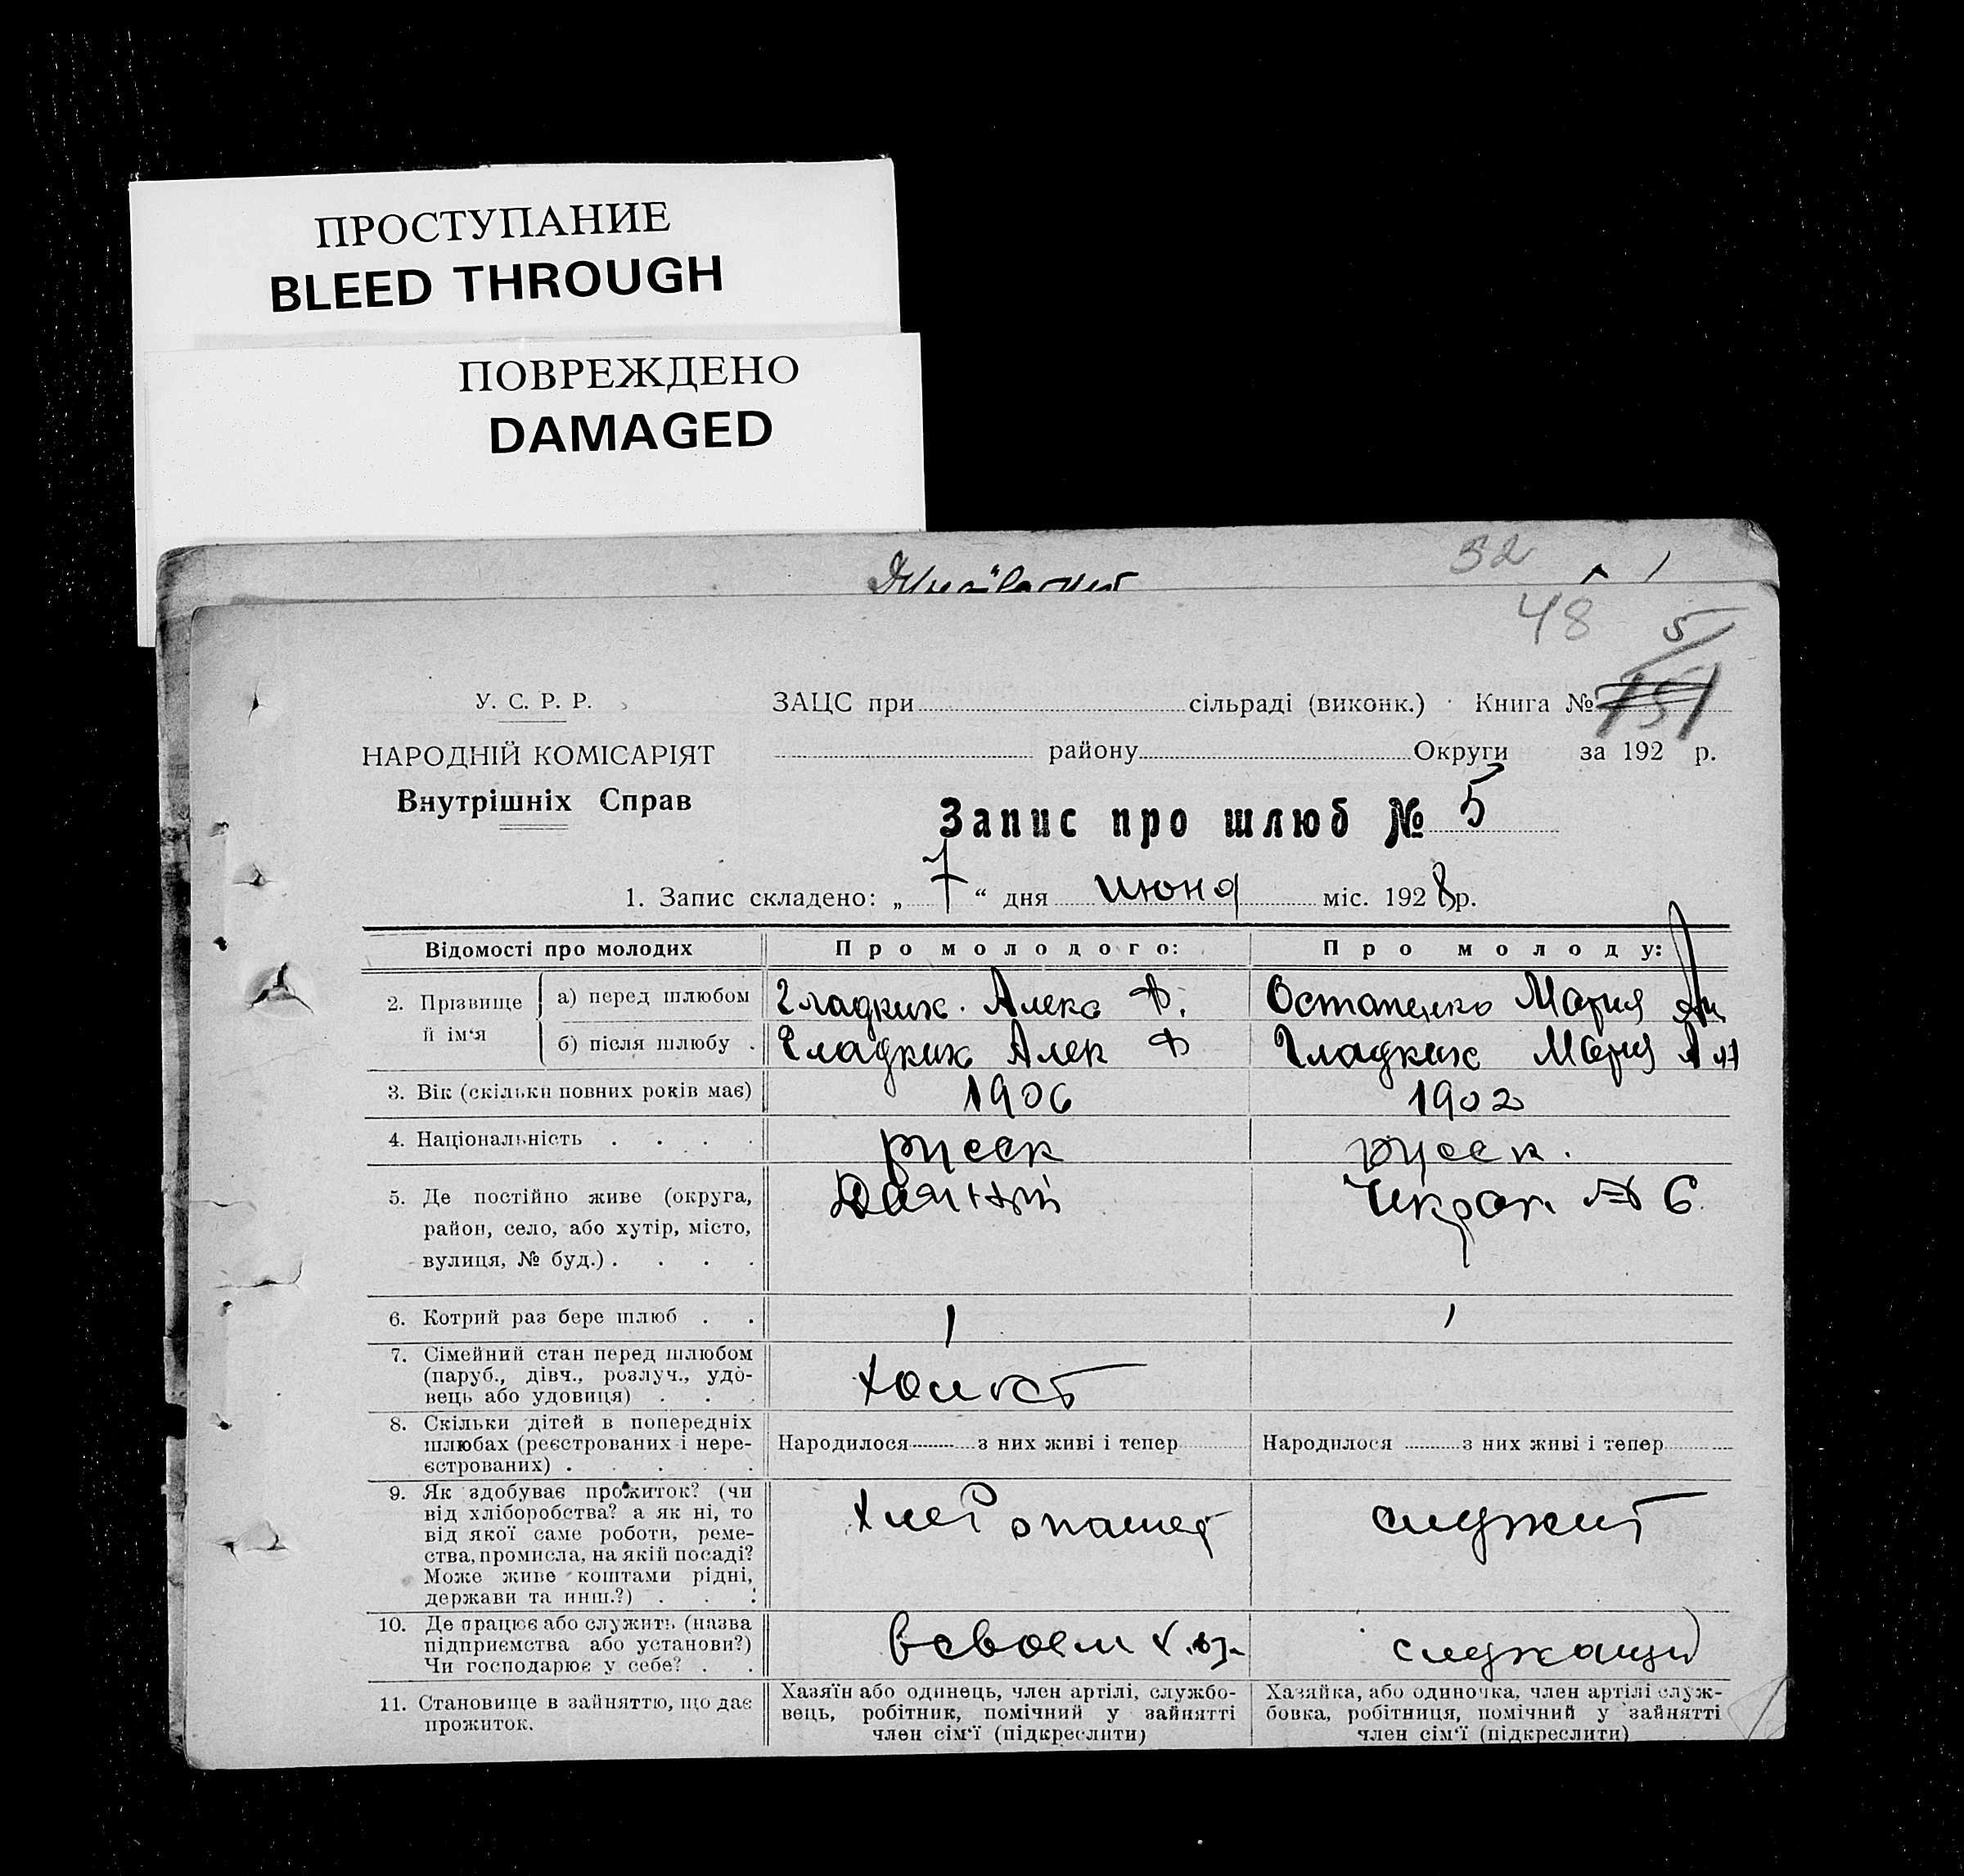 ПРОСТУПАНИЕ
BLEED THROUGH
ПОВРЕЖДЕНО
DAMAGED
52
48
5
У. С. Р. Р.
ЗАЦС при сільраді (виконк.) Книга № 151
НАРОДНІЙ КОМІСАРІЯТ
району Округи за 192 р.
Внутрішніх Справ
Запис про шлюб № 5
1. Запис складено: „ 7 “ дня июня міс. 1928 р.
Відомості про молодих
Про молодого:
Про молоду:
2. Прізвище й ім‘я
а) перед шлюбом
Гладких. Алекс Ф.
Остапенко Мария
б) після шлюбу .
Гладких Алек Ф
Гладких Мария Ан
3. Вік (скільки повних років має)
1906
1902
4. Національність . . . .
русск
русск.
5. Де постійно живе (округа,
район, село, або хутір, місто,
вулиця, № буд.) . . . .
№ 6
6. Котрий раз бере шлюб . .
1
1
7. Сімейний стан перед шлюбом
(паруб., дівч., розлуч., удо-
вець або удовиця) . . .
холост
8. Скільки дітей в попередніх
шлюбах (реєстрованих і нере-
єстрованих) . . . . .
Народилося з них живі і тепер
Народилося з них живі і тепер
9. Як здобуває прожиток? (чи
від хліборобства? а як ні, то
від якої саме роботи, реме-
ства, промисла, на якій посаді?
Може живе коштами рідні,
держави та инш.?) . . .
хлебопашец
служит
10. Де працює або служить (назва
підприємства або установи?)
Чи господарює у себе? . .
в своем х.вз.
служащий
11. Становище в зайняттю, що дає
прожиток.
Хазяїн або одинець, член артілі, службо-
вець, робітник, помічний у зайнятті
член сім‘ї (підкреслити)
Хазяйка, або одиночка, член артілі служ-
бовка, робітниця, помічний у зайнятті
член сім‘ї (підкреслити)